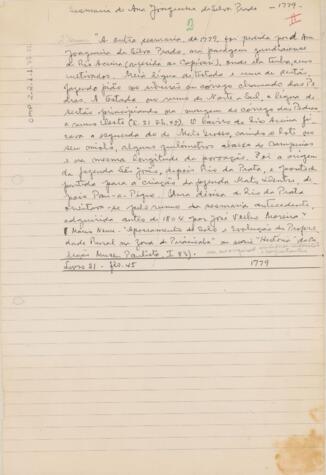 Sesmaria de Ana Joaquina da Silva Prado - 1779.
2
II
"A outra sesmaria, de 1779, foi pedida por d. Ana
Joaquina da Silva Prado, na paragem
Rio Acima onde ela tinha
cultivados. Meia légua de testada e uma de sertão,
fazendo pião no ribeirão ou córrego chamado das Pe-
dras. A testada ao rumo de Norte-Sul, a légua de
sertão principiando na margem do córrego das Pedras
a rumo Oeste (L. 21 fls. 45). O bairro do Rio Acima fi-
cava a seguida do de Mato Grosso, caindo o lote no
seu ocaso, alguns quilômetros abaixo de Campinas
e na mesma longitude da povoação. Foi a origem
da fazenda São João, depois Rio da Prata, e ponto de
partida para a criação da fazenda Mato Dentro de-
pois Pau-a-Pique. Uma divisa da Rio da Prata
pelo rumo da sesmaria antecedente,
adquirida antes de 1804 por José Velho Moreira"
( Mário Neme - "Apossamento do Solo e Evolução da Proprie-
dade Rural na Zona de Piracicaba" na série "História" da Co-
leção Museu Paulista, I 83).
Livro 21 - fls. 45 1779